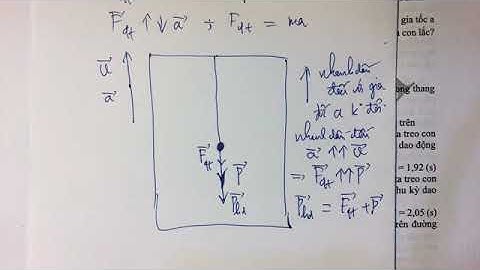 F⃗qt ↑↓ a⃗ ; Fqt = ma
v⃗
a⃗
F⃗qt
P⃗
P⃗hd
↑ nhanh dần
đều với gia
tốc a k° đổi.
nhanh dần đều
a⃗ ↑↑ v⃗
⇒ F⃗qt ↑↑ P⃗
P⃗hd = F⃗qt + P⃗
gia tốc a
a con lắc?
ng thang
trên
a treo con
dao động
= 1,92 (s)
a treo con
hu kỳ dao
= 2,05 (s)
rên đường